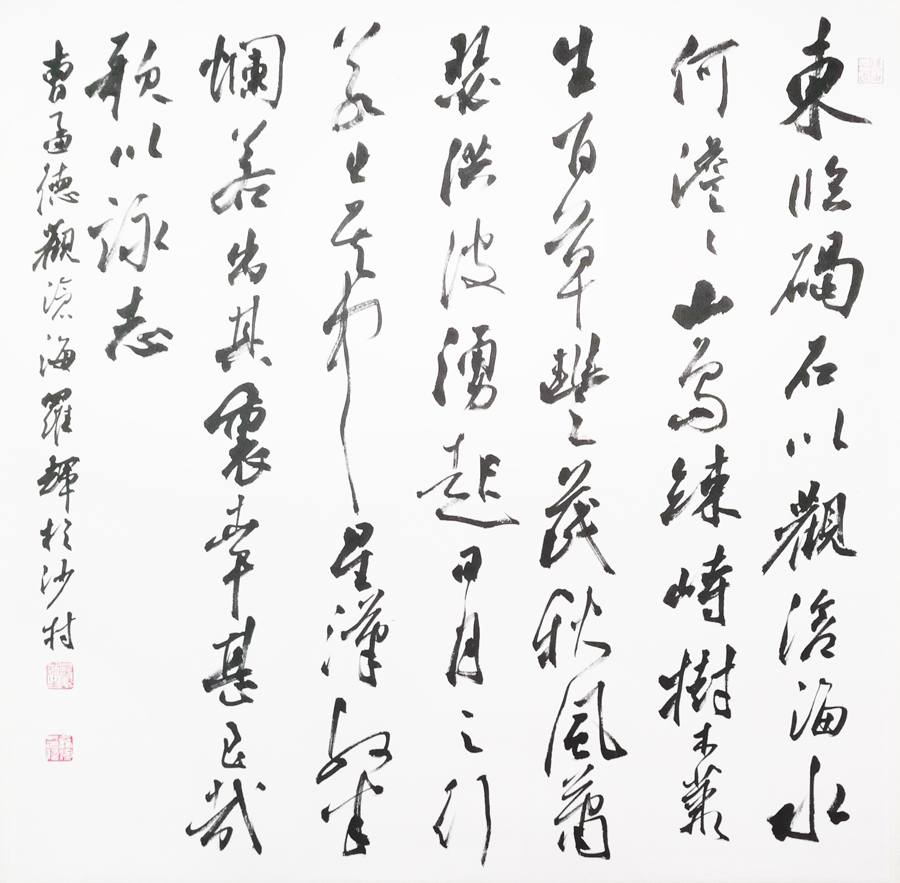 東臨碣石以觀滄海水
何澹〻山島竦峙樹木叢
生百草豐〻茂秋風蕭
瑟洪波湧起日月之行
若出其中星漢粲
爛若出其裏幸甚至哉
歌以詠志
曹孟德觀滄海羅輝於沙村